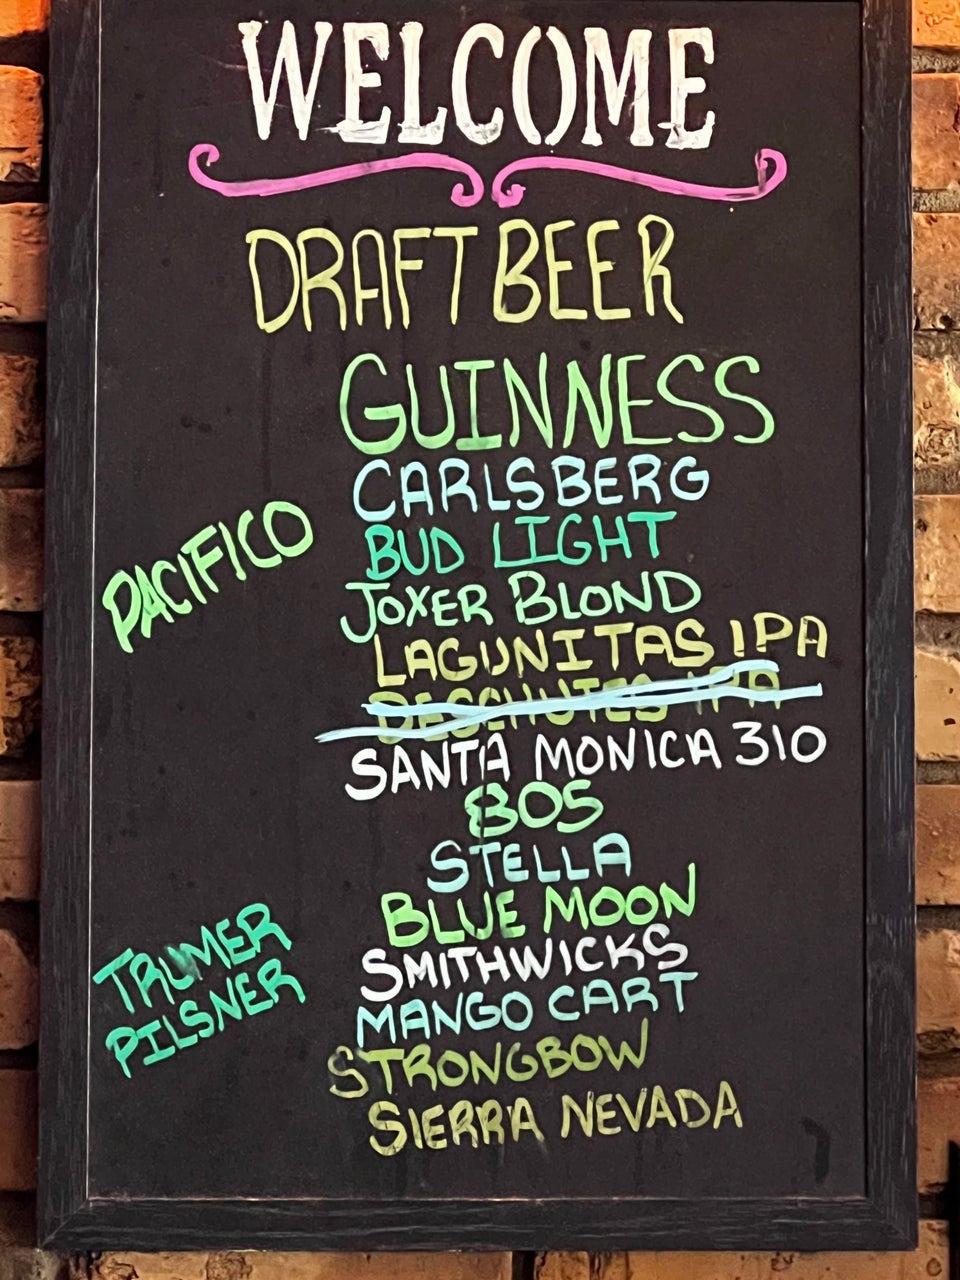 WELCOME
DRAFT BEER
GUINNESS
CARLSBERG
PACIFICO
BUD LIGHT
JOXER BLOND
LAGUNITAS IPA
DESCHUTES IPA
SANTA MONICA 310
805
STELLA
BLUE MOON
TRUMER
PILSNER
SMITHWICKS
MANGO CART
STRONGBOW
SIERRA NEVADA